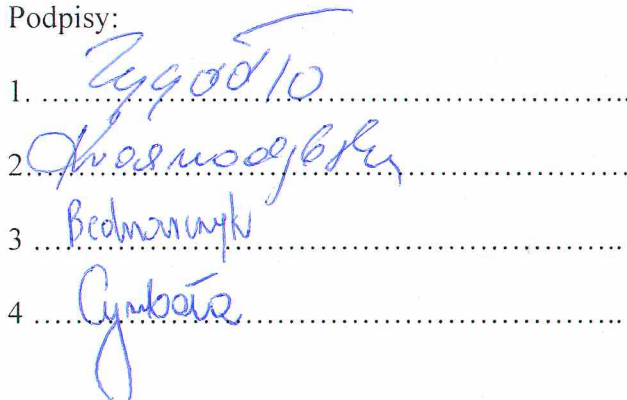 Podpisy:
1. Zygadło
2. Krasnodębska
3 Bednarczyk
4 Cymbała